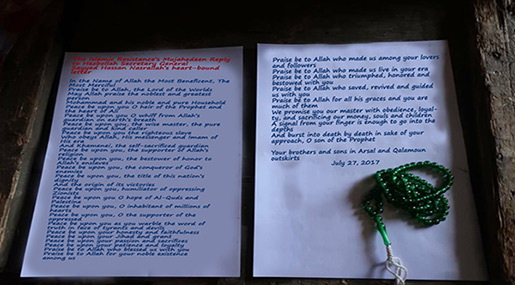 The Islamic Resistance's Mujahedeen Reply
to Hezbollah Secretary General
Sayyed Hassan Nasrallah's heart-bound
letter
In the Name of Allah the Most Beneficent, The
Most Merciful
Praise be to Allah, the Lord of the Worlds
May Allah praise the noblest and greatest
person
Mohammed and his noble and pure Household
Peace be upon you O son of the Prophet and
the heart of Ali
Peace be upon you O whiff from Allah's
guardian on earth's breath
Peace be upon you, the wise master, the pure
guardian and kind caller
Peace be upon you the righteous slave
who obeys Allah, His messenger and Imam of
his era
And Khamenai, the self-sacrificed guardian
Peace be upon you, the supporter of Allah's
religion
Peace be upon you, the bestower of honor to
Allah's enslave
Peace be upon you, the conqueror of God's
enemies
Peace be upon you, the title of this nation's
dignity
And the origin of its victories
Peace be upon you, humiliator of oppressing
Zionists
Peace be upon you O hope of Al-Quds and
Palestine
Peace be upon you, O inhabitant of millions of
hearts
Peace be upon you, O the supporter of the
oppressed
Peace be upon you as you warble the word of
truth in face of tyrants and devils
Peace be upon your honesty and faithfulness
Peace be upon your Jihad and grant
Peace be upon your passion and sacrifices
Peace be upon your patience and loyalty
Praise be to Allah who blessed us with you
Praise be to Allah for your noble existence
among us
Praise be to Allah who made us among your lovers
and followers
Praise be to Allah who made us live in your era
Praise be to Allah who triumphed, honored and
bestowed with you
Praise be to Allah who saved, revived and guided
us with you
Praise be to Allah for all his graces and you are
much of them
We promise you our master with obedience, loyal-
ty, and sacrificing our money, souls and children
A signal from your finger is enough to go into the
depths
And burst into death by death in sake of your
approach, O son of the Prophet
Your brothers and sons in Arsal and Qalamoun
outskirts
July 27, 2017